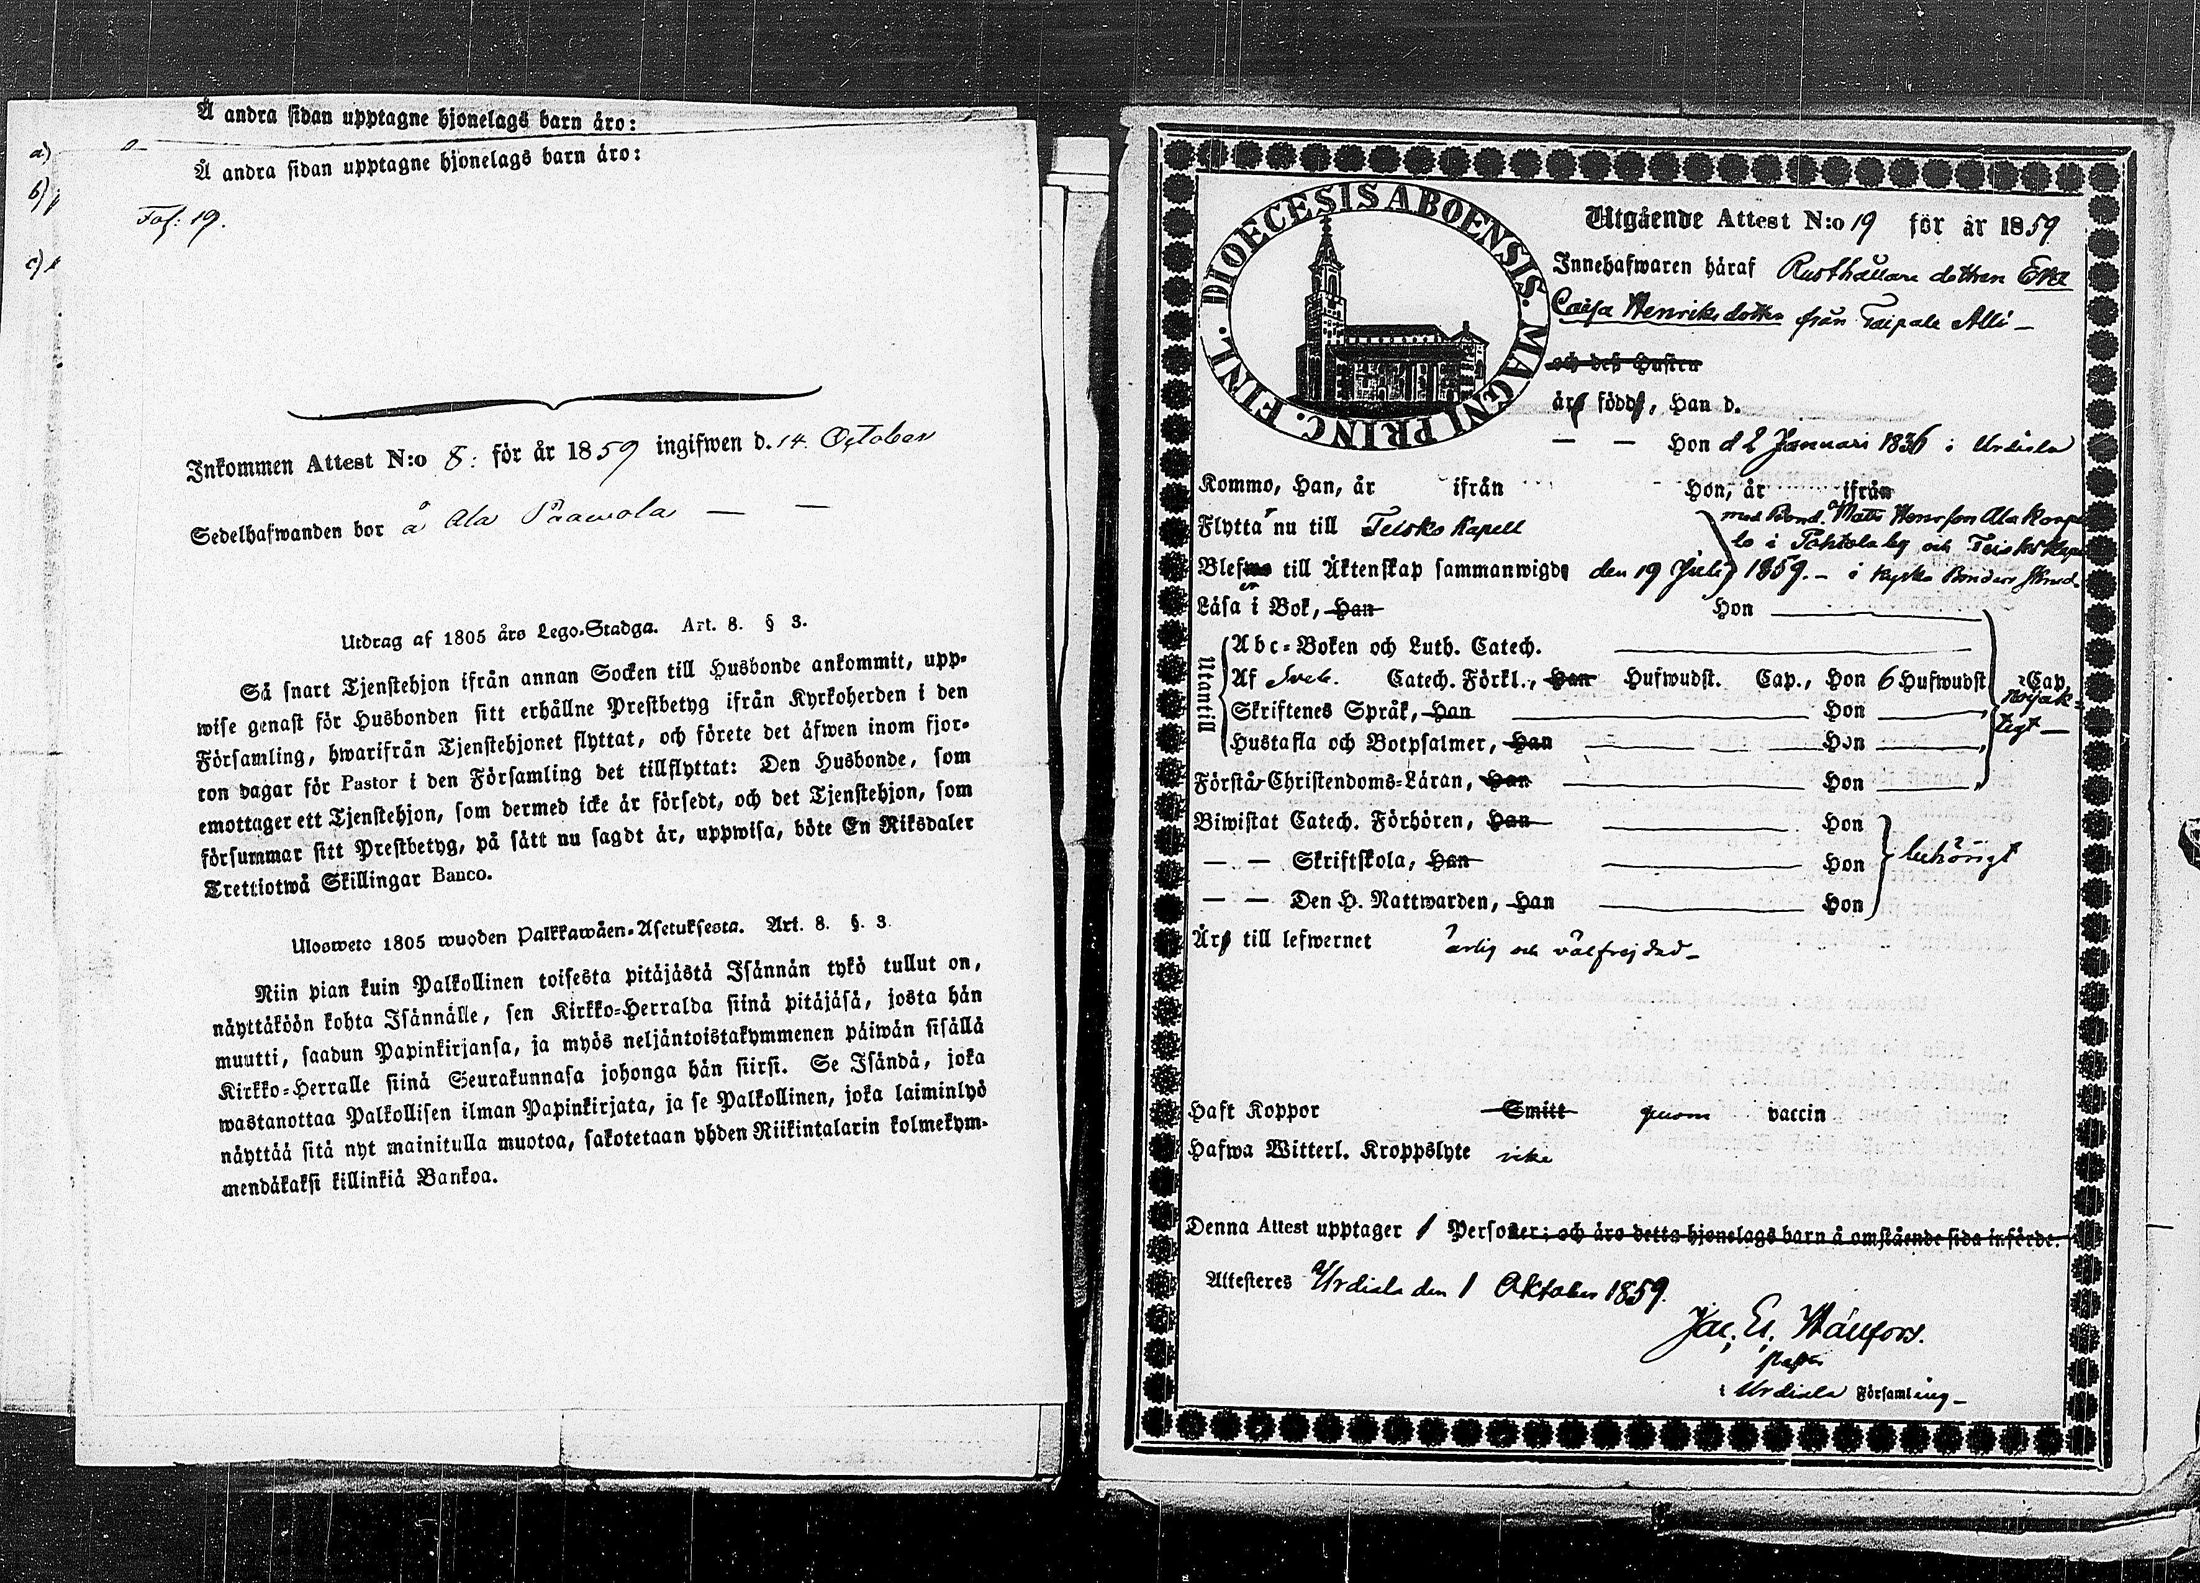 Å andra sidan upptagne hjonelags barn äro:
a)
Å andra sidan upptagne hjonelags barn äro:
b)
Fol: 19.
c)
Inkommen Attest N:o 8: för år 1859 ingifwen d. 14. October
Sedelhafwanden bor å Ala Paawola — —
Utdrag af 1805 års Lego-Stadga. Art. 8. § 3.
Så snart Tjenstehjon ifrån annan Socken till Husbonde ankommit, upp-
wise genast för Husbonden sitt erhållne Prestbetyg ifrån Kyrkoherden i den
Församling, hwarifrån Tjenstehjonet flyttat, och förete det äfwen inom fjor-
ton dagar för Pastor i den Församling det tillflyttat: Den Husbonde, som
emottager ett Tjenstehjon, som dermed icke är försedt, och det Tjenstehjon, som
försummar sitt Prestbetyg, på sätt nu sagdt är, uppwisa, böte En Riksdaler
Trettiotwå Skillingar Banco.
Ulosweto 1805 wuoden Palkkawäen-Asetuksesta. Art. 8. §. 3.
Niin pian kuin Palkollinen toisesta pitäjästä Isännän tykö tullut on,
näyttäköön kohta Isännälle, sen Kirkko-Herralda siinä pitäjäsä, josta hän
muutti, saadun Papinkirjansa, ja myös neljäntoistakymmenen päiwän sisällä
Kirkko-Herralle siinä Seurakunnasa johonga hän siirsi. Se Isändä, joka
wastanottaa Palkollisen ilman Papinkirjata, ja se Palkollinen, joka laiminlyö
näyttää sitä nyt mainitulla muotoa, sakotetaan yhden Riikintalarin kolmekym-
mendäkaksi killinkiä Bankoa.
DIOECESIS ABOENSIS. MAGNI PRINC. FINL.
Utgående Attest N:o 19 för år 1859
Innehafwaren häraf Rusthållare dottren Eva
Caisa Henriksdotter från Taipale Alli —
och dess Hustru
äro födde, Han d.
— — Hon d 2 Januari 1836 i Urdiala
Kommo, Han, år ifrån Hon, år ifrån
Flytta nu till Teisko Kapell
med Bond. Mats Henrsson Ala
i Pohtola by och Teisko
Blefwo till Äktenskap sammanwigde den 19 Juli 1859. — i
Läsa i Bok, Han Hon
Utantill
Abc-Boken och Luth. Catech.
Af Sveb. Catech. Förkl., Han Hufwudst. Cap., Hon 6 Hufwudst. Cap.
Skriftenes Språk, Han Hon
nöjak-
tigt —
Hustafla och Botpsalmer, Han Hon
Förstå Christendoms-Läran, Han Hon
Biwistat Catech. Förhören, Han Hon
— — Skriftskola, Han Hon
behörigt
— — Den H. Nattwarden, Han Hon
Äro till lefwernet ärlig och välfrejdad —
Haft Koppor Smitt genom vaccin
Hafwa Witterl. Kroppslyte icke
Denna Attest upptager 1 Personer; och äro detta hjonelags barn å omstående sida införde.
Attesteres Urdiala den 1 Oktober 1859.
Jac. Ed. Wänfors.
pastor
i Urdiala Församling —